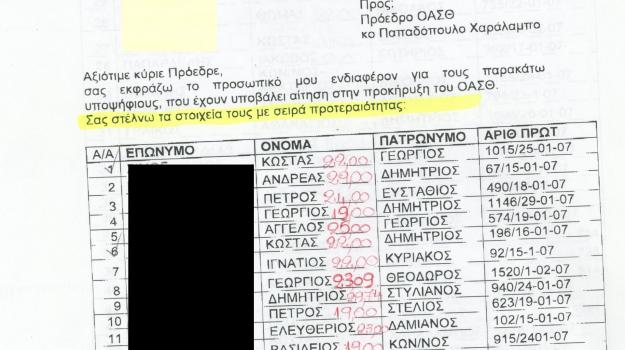 Προς:
Πρόεδρο ΟΑΣΘ
κο Παπαδόπουλο Χαράλαμπο
Αξιότιμε κύριε Πρόεδρε,
σας εκφράζω το προσωπικό μου ενδιαφέρον για τους παρακάτω
υποψήφιους, που έχουν υποβάλει αίτηση στην προκήρυξη του ΟΑΣΘ.
Σας στέλνω τα στοιχεία τους με σειρά προτεραιότητας:
Α/Α ΕΠΩΝΥΜΟ ΟΝΟΜΑ ΠΑΤΡΩΝΥΜΟ ΑΡΙΘ ΠΡΩΤ
1 ΚΩΣΤΑΣ 22,00 ΓΕΩΡΓΙΟΣ 1015/25-01-07
2 ΑΝΔΡΕΑΣ 22,00 ΔΗΜΗΤΡΙΟΣ 67/15-01-07
3 ΠΕΤΡΟΣ 24,00 ΕΥΣΤΑΘΙΟΣ 490/18-01-07
4 ΓΕΩΡΓΙΟΣ 1900 ΔΗΜΗΤΡΙΟΣ 1146/29-01-07
5 ΑΓΓΕΛΟΣ 2500 ΓΕΩΡΓΙΟΣ 574/19-01-07
6 ΚΩΣΤΑΣ 22,00 ΔΗΜΗΤΡΙΟΣ 196/16-01-07
7 ΙΓΝΑΤΙΟΣ 22,00 ΚΥΡΙΑΚΟΣ 92/15-1-07
8 ΓΕΩΡΓΙΟΣ 2309 ΘΕΟΔΩΡΟΣ 1520/1-02-07
9 ΔΗΜΗΤΡΙΟΣ ΣΤΥΛΙΑΝΟΣ 940/24-01-07
10 ΠΕΤΡΟΣ 1900 ΣΤΕΛΙΟΣ 623/19-01-07
11 ΕΛΕΥΘΕΡΙΟΣ 2300 ΔΑΜΙΑΝΟΣ 102/15-01-07
ΒΑΣΙΛΕΙΟΣ 1900 ΚΩΝ/ΝΟΣ 915/2401-07